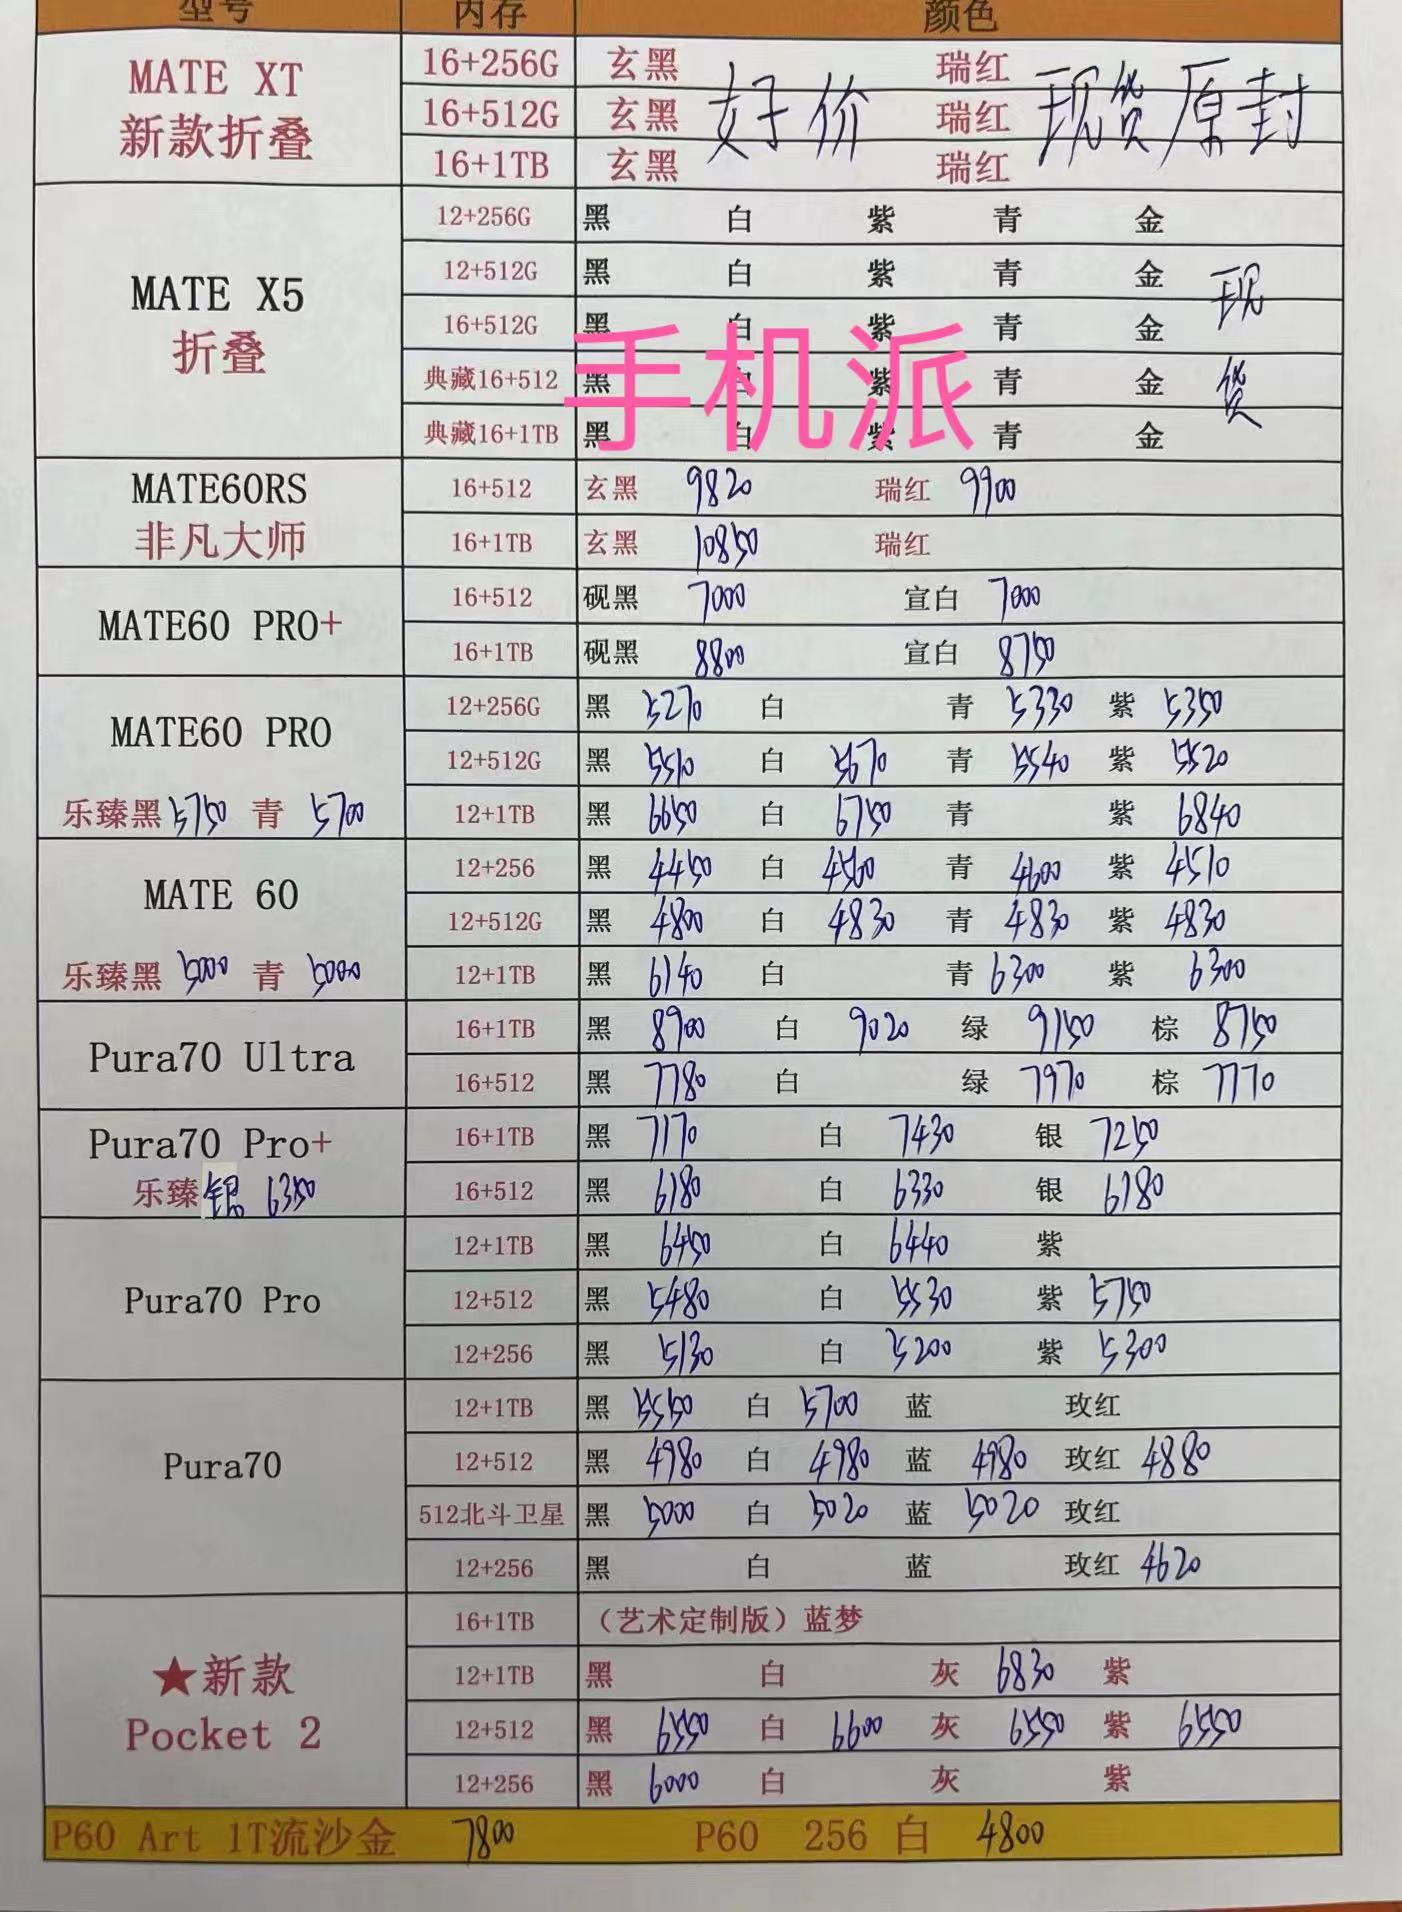 型号 内存 颜色
MATE XT 16+256G 玄黑 瑞红
新款折叠 16+512G 玄黑 好价 瑞红 现货原封
16+1TB 玄黑 瑞红
12+256G 黑 白 紫 青 金
12+512G 黑 白 紫 青 金 现
MATE X5 16+512G 黑 白 紫 青 金
折叠 典藏16+512 黑 白 紫 青 金 货
手机派
典藏16+1TB 黑 白 紫 青 金
MATE60RS 16+512 玄黑 9820 瑞红 9900
非凡大师 16+1TB 玄黑 10850 瑞红
MATE60 PRO+ 16+512 砚黑 7000 宣白 7000
16+1TB 砚黑 8800 宣白 8750
MATE60 PRO 12+256G 黑 5270 白 青 5330 紫 5350
12+512G 黑 5510 白 5670 青 5540 紫 5520
乐臻黑 5750 青 5700 12+1TB 黑 6650 白 6750 青 紫 6840
MATE 60 12+256 黑 4450 白 4560 青 4600 紫 4510
12+512G 黑 4800 白 4830 青 4830 紫 4830
乐臻黑 5000 青 5000 12+1TB 黑 6140 白 青 6300 紫 6300
Pura70 Ultra 16+1TB 黑 8900 白 9020 绿 9150 棕 8750
16+512 黑 7780 白 绿 7970 棕 7770
Pura70 Pro+ 16+1TB 黑 7170 白 7430 银 7250
乐臻银 6350 16+512 黑 6180 白 6330 银 6180
12+1TB 黑 6450 白 6440 紫
Pura70 Pro 12+512 黑 5480 白 5530 紫 5750
12+256 黑 5130 白 5200 紫 5300
12+1TB 黑 5550 白 5700 蓝 玫红
Pura70 12+512 黑 4980 白 4980 蓝 4980 玫红 4880
512北斗卫星 黑 5000 白 5020 蓝 5020 玫红
12+256 黑 白 蓝 玫红 4620
16+1TB （艺术定制版）蓝梦
★新款 12+1TB 黑 白 灰 6830 紫
Pocket 2 12+512 黑 6550 白 6600 灰 6550 紫 6550
12+256 黑 6000 白 灰 紫
P60 Art 1T流沙金 7800 P60 256 白 4800